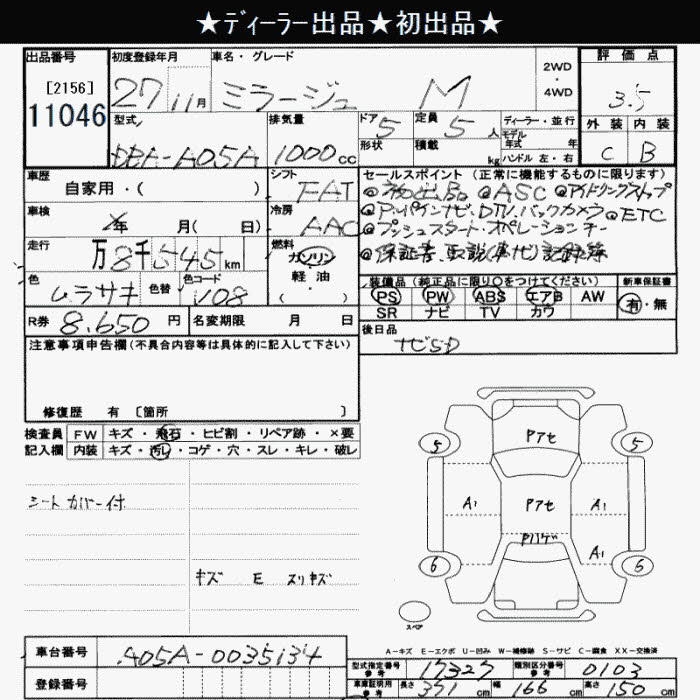 ★ディーラー出品★初出品★
出品番号 初度登録年月 車名・グレード 評価点
[2156]
11046
27 11月 ミラージュ M
2WD・4WD
3.5
外装 内装
C B
型式 排気量 ドア 定員 ディーラー・並行
DBA-A05A 1000cc 5 5人
モデル年式 年
形状 積載 kg ハンドル 左・右
車歴 シフト セールスポイント(正常に機能するものに限ります)
自家用・( ) FAT
◎初出品 ◎ASC ◎アイドリングストップ
車検 冷房
年 月( 日) AAC
◎アルパインナビ、DTV、バックカメラ ◎ETC
◎プッシュスタート・オペレーションキー
◎保証書、取説(車ナビ)記録簿
走行 燃料
万8千545km ガソリン・軽油・( )
色 色替 色コード
ムラサキ V08
装備品(純正品に限り○をつけてください) 新車保証書
PS PW ABS エアB AW 有・無
SR ナビ TV カワ
R券 8.650円 名変期限 月 日
後日品
ナビSD
注意事項申告欄(不具合内容等は具体的に記入して下さい)
修復歴 有 〔箇所 〕
検査員 FW キズ・飛石・ヒビ割・リペア跡・×要
記入欄 内装 キズ・汚れ・コゲ・穴・スレ・キレ・破レ
シートカバー付
キズ E スリキズ
Pアセ
5 5
A1 Pアセ A1
A1
6 6
スペア
A-キズ E-エクボ U-凹み W-補修跡 S-サビ C-腐食 XX-交換済
車台番号 A05A-0035134
登録番号
型式指定番号 参考 17327 類別区分番号 参考 0103
車庫証明用 参考 長さ 371cm 幅 166cm 高さ 150cm